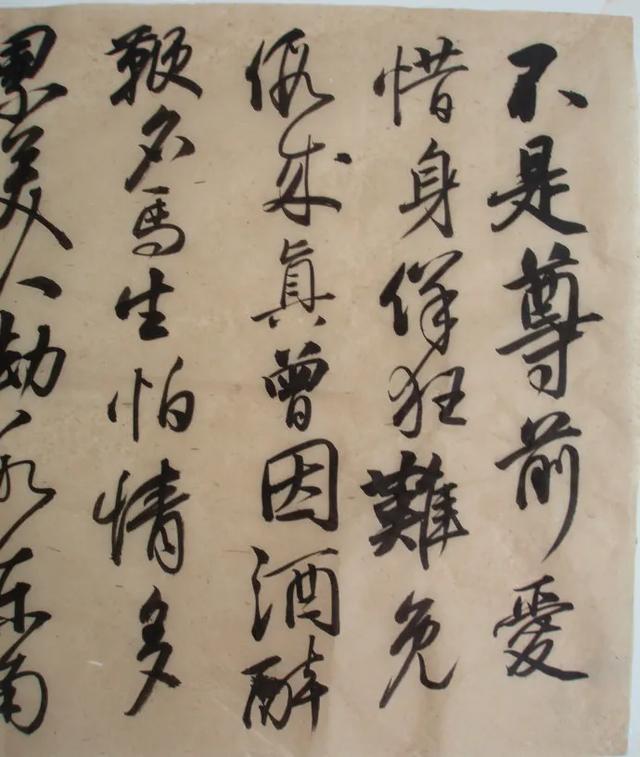 不是尊前愛
惜身佯狂難免
假成真曾因酒醉
鞭名馬生怕情多
累美人劫東南